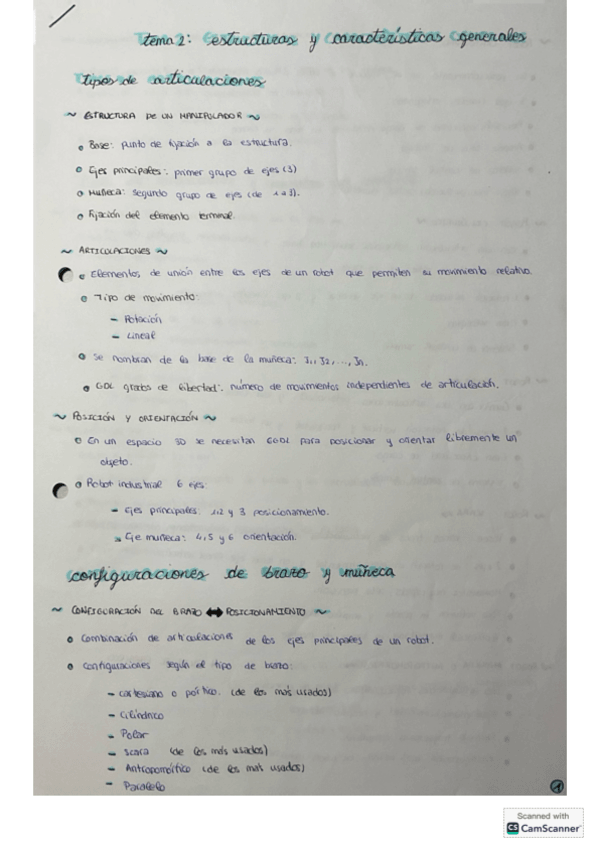 tema 2: estructuras y características generales
tipos de articulaciones
~ ESTRUCTURA DE UN MANIPULADOR ~
Base: punto de fijación a la estructura.
Ejes principales: primer grupo de ejes (3)
Muñeca: segundo grupo de ejes (de 1 a 3).
Fijación del elemento terminal.
~ ARTICULACIONES ~
Elementos de unión entre los ejes de un robot que permiten su movimiento relativo.
Tipo de movimiento:
- Rotación
- Lineal
Se nombran de la base de la muñeca: J1, J2, ..., Jn.
GDL grados de libertad: número de movimientos independientes de articulación.
~ POSICIÓN Y ORIENTACIÓN ~
En un espacio 3D se necesitan 6GDL para posicionar y orientar libremente un
objeto.
Robot industrial 6 ejes:
- Ejes principales: 1,2 y 3 posicionamiento.
- Eje muñeca: 4,5 y 6 orientación.
configuraciones de brazo y muñeca
~ CONFIGURACIÓN DEL BRAZO ↔ POSICIONAMIENTO ~
Combinación de articulaciones de los ejes principales de un robot.
Configuraciones según el tipo de brazo:
- cartesiano o pórtico. (de los más usados)
- Cilíndrico
- Polar
- Scara (de los más usados)
- Antropomórfico (de los mas usados)
- Paralelo
1
Scanned with
CS CamScanner